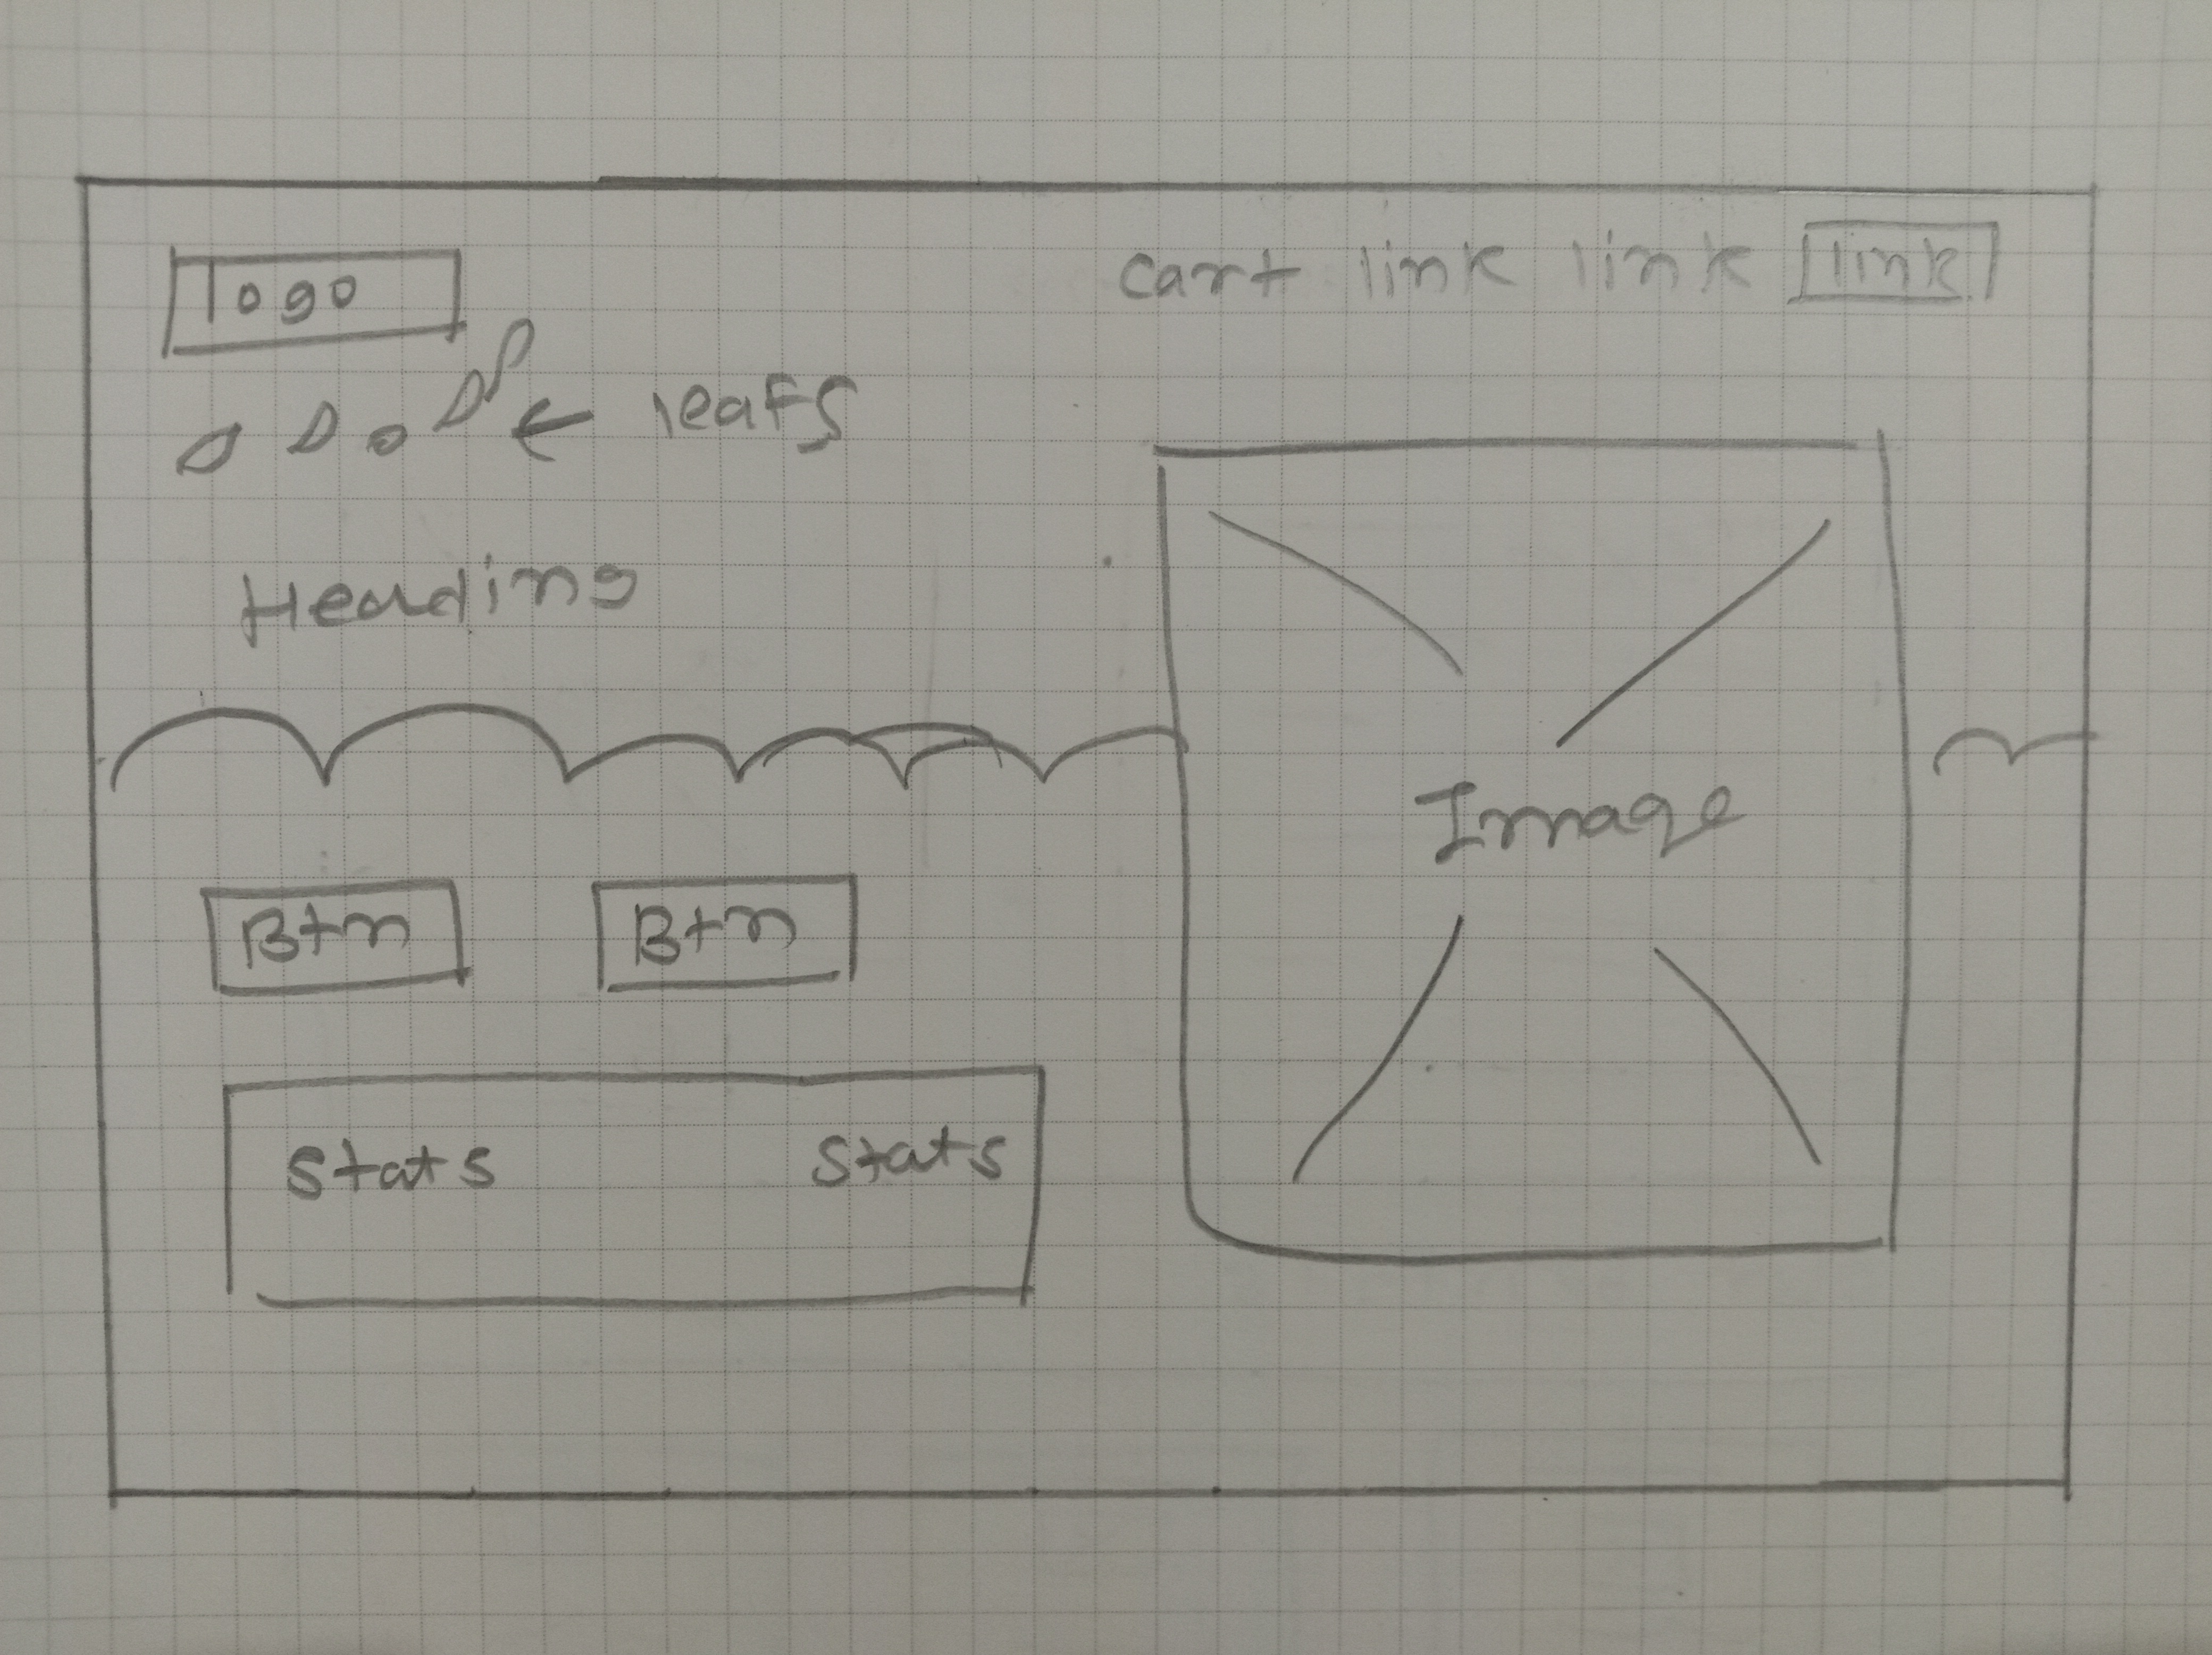 logo
cart link link link
leafs
Heading
Image
Btn Btn
Stats Stats